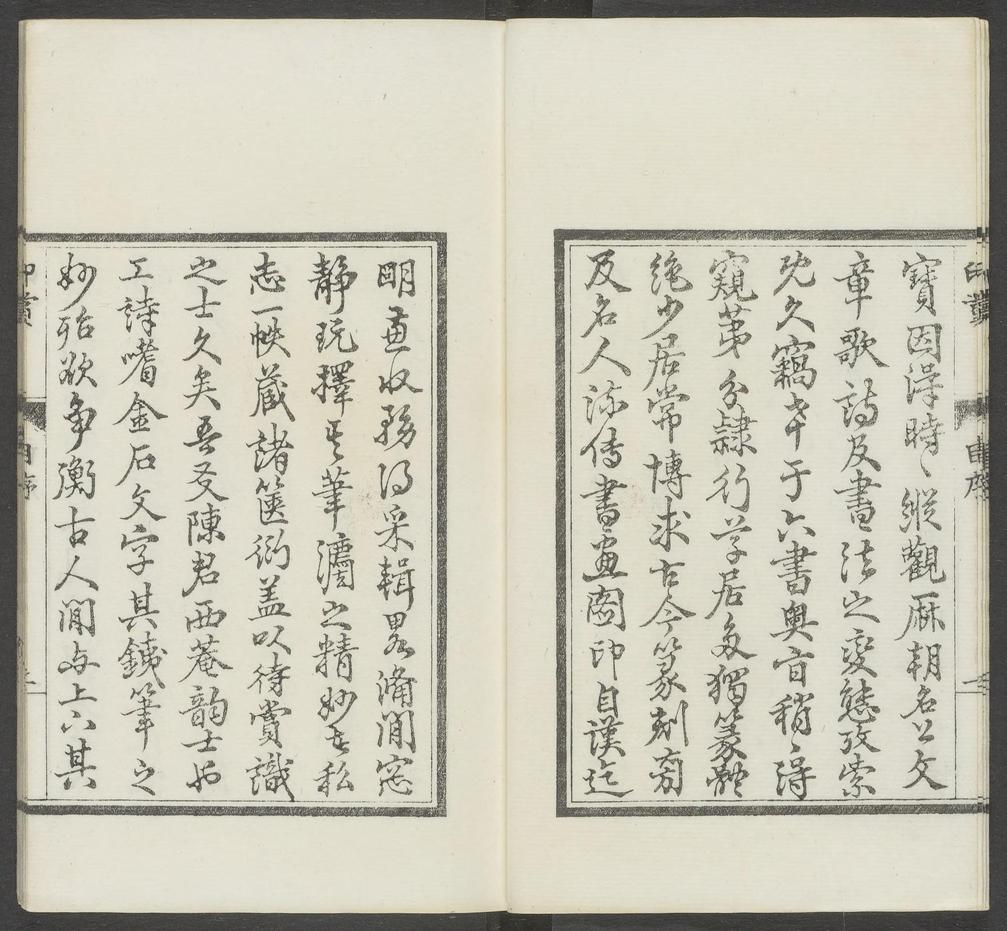 寶因得時〻縱觀厤朝名公文
章歌詩及書法之變態攷索
既久竊于六書奧旨稍〻得
窺苐分隸行草居多獨篆體
絶少居常博求古今篆刻剪
及名人流傳書畫圖印自漢迄
明兼收務得采輯畧備閒窓
靜玩擇其筆灋之精妙者私
志一帙藏諸篋衍盖以待賞識
之士久矣吾友陳君西菴韵士也
工詩嗜金石文字其銕筆之
妙殆欲争衡古人閒与上下其
印叢
自序